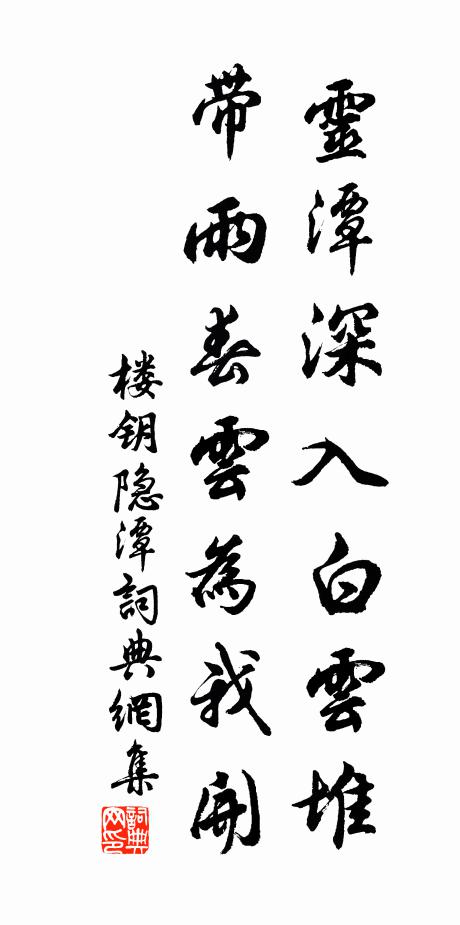 靈潭深入白雲堆
帶雨春雲為我開
楼钥隐潭詞典網集
詞典网印